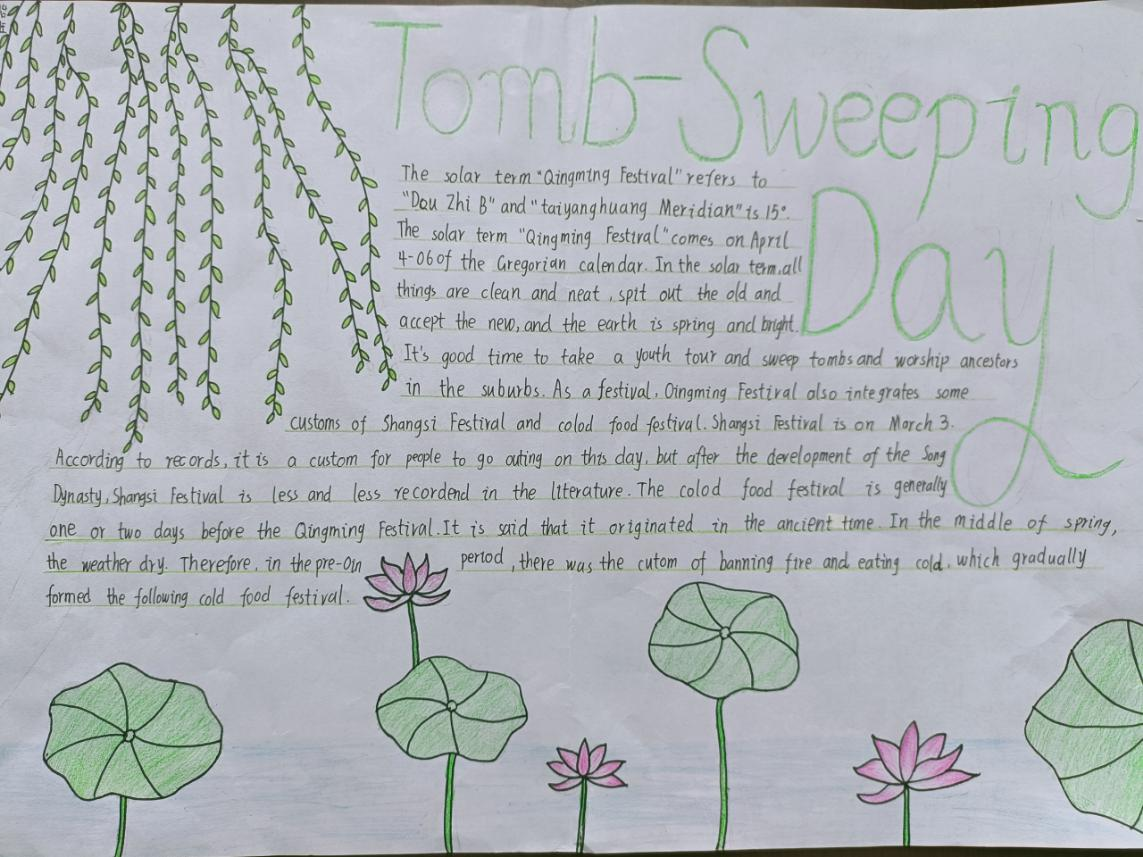 Tomb-Sweeping
Day
The solar term "Qingming Festival" refers to
"Dou Zhi B" and "taiyanghuang Meridian" is 15°.
The solar term "Qingming Festival" comes on April
4-06 of the Gregorian calendar. In the solar term, all
things are clean and neat, spit out the old and
accept the new, and the earth is spring and bright.
It's good time to take a youth tour and sweep tombs and worship ancestors
in the suburbs. As a festival, Qingming Festival also integrates some
customs of Shangsi Festival and colod food festival. Shangsi Festival is on March 3.
According to records, it is a custom for people to go outing on this day, but after the development of the Song
Dynasty, Shangsi Festival is less and less recordend in the literature. The colod food festival is generally
one or two days before the Qingming Festival. It is said that it originated in the ancient time. In the middle of spring,
the weather dry. Therefore, in the pre-Qin period, there was the cutom of banning fire and eating cold, which gradually
formed the following cold food festival.